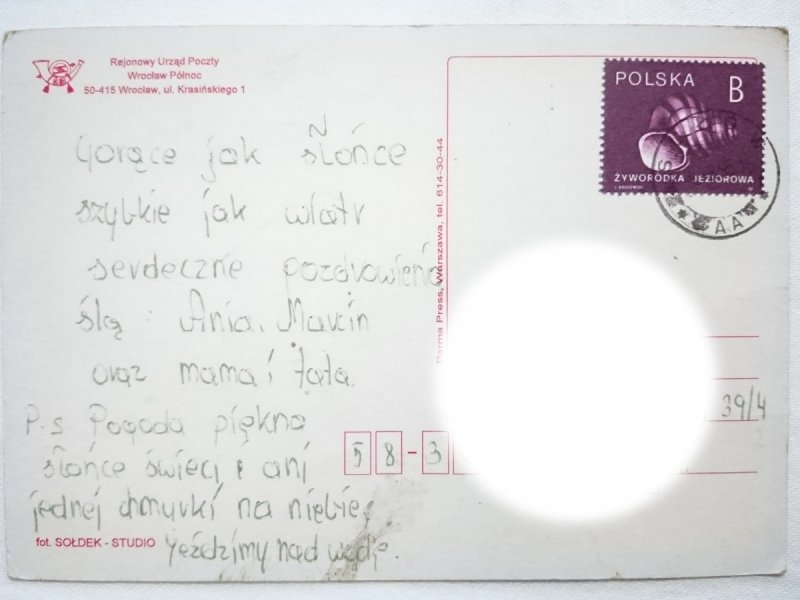 Rejonowy Urząd Poczty
Wrocław Północ
50-415 Wrocław, ul. Krasińskiego 1
POLSKA B
ŻYWORODKA JEZIOROWA
AA
Gorące jak słońce
szybkie jak wiatr
serdeczne pozdrowienia
ślą: Ania, Marcin
oraz mama i tata.
P.s Pogoda piękna
słońce świeci i ani
jednej chmurki na niebie,
jeździmy nad wodę.
Parma Press, Warszawa, tel. 614-30-44
39/4
58-3
fot. SOŁDEK - STUDIO